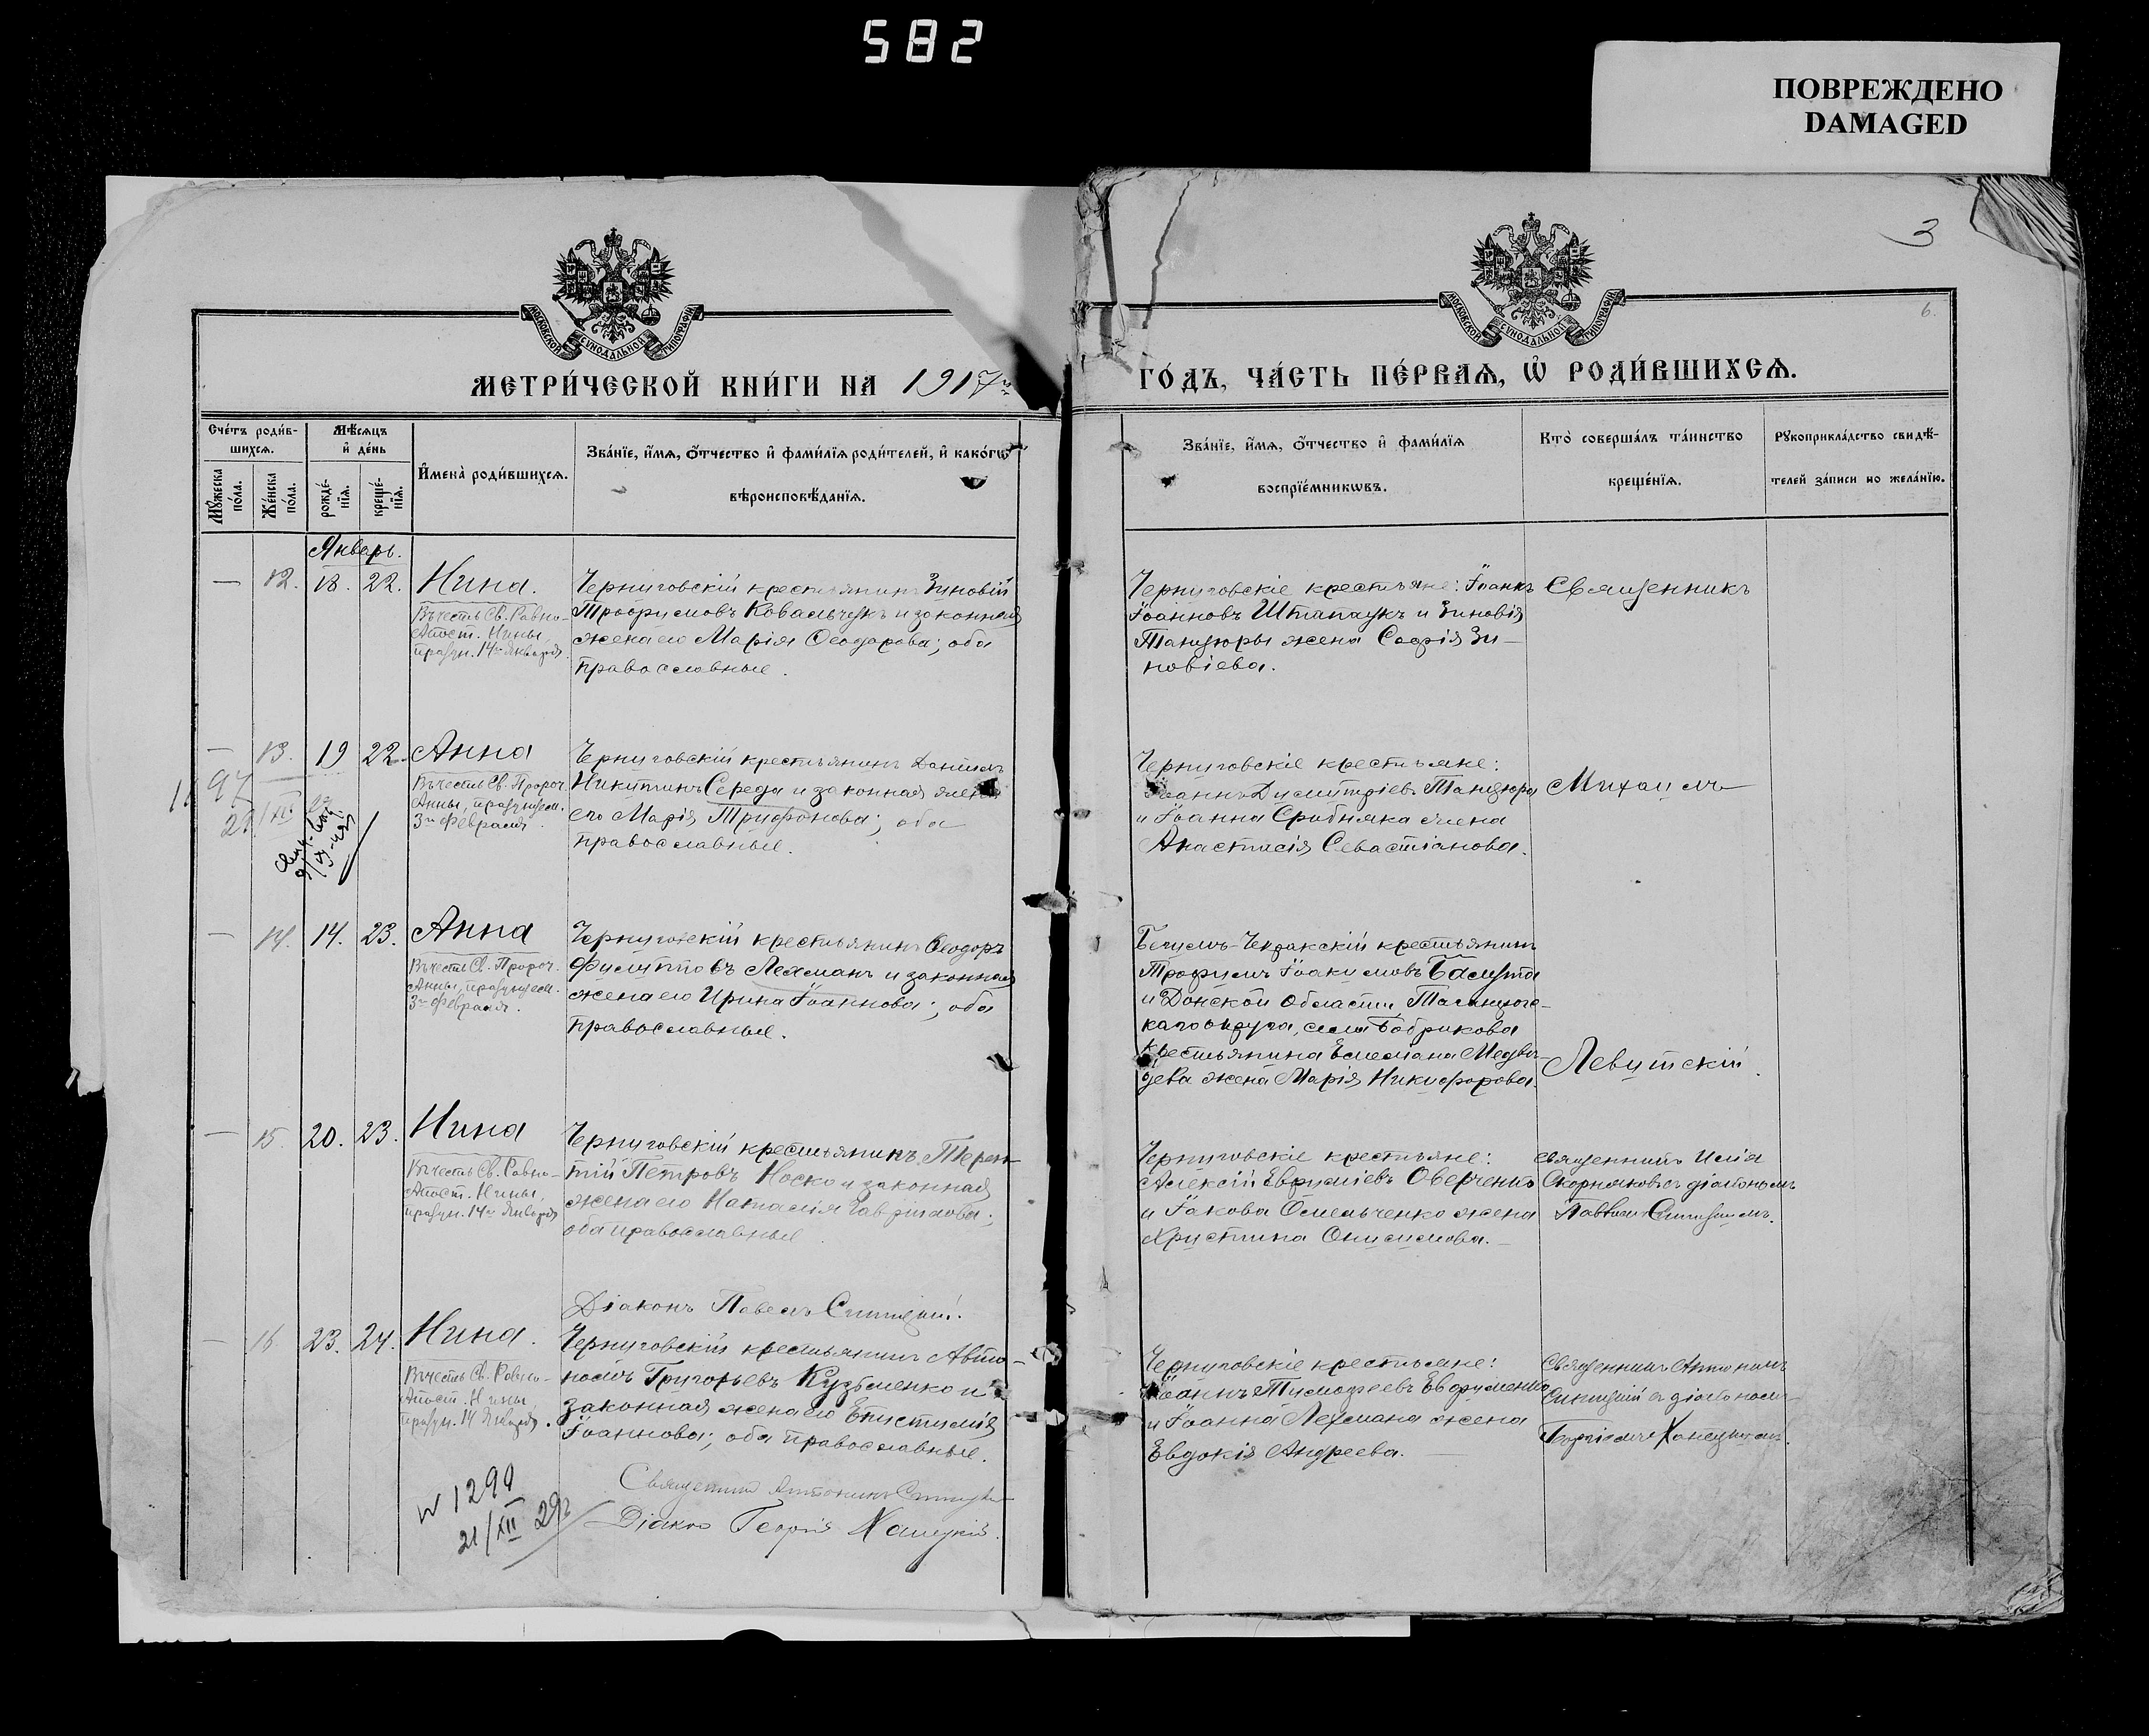 582
ПОВРЕЖДЕНО
DAMAGED
3
6.
МОСКОВСКОЙ СУНОДАЛЬНОЙ ТИПОГРАФІИ
МОСКОВСКОЙ СУНОДАЛЬНОЙ ТИПОГРАФІИ
МЕТРИ́ЧЕСКОЙ КНИ́ГИ НА 1917
ГО́ДЪ, ЧА́СТЬ ПЕ́РВАѦ, Ѡ҆ РОДИ́ВШИХСѦ.
Сче́тъ роди́в-
шихсѧ.
Мѣ́сѧцъ
и҆ де́нь
Мꙋ́жеска
по́ла.
Же́нска
по́ла.
рожде́-
нїѧ.
креще́-
нїѧ.
И҆мена̀ роди́вшихсѧ.
Зва́нїе, и҆́мѧ, ѻ҆́тчество и҆ фами́лїѧ роди́телей, и҆ како́гѡ
вѣроисповѣ́данїѧ.
Зва́нїе, и҆́мѧ, ѻ҆́тчество и҆ фами́лїѧ
воспрїе́мникѡвъ.
Кто̀ соверша́лъ та́инство
креще́нїѧ.
Рꙋкоприкла́дство свидѣ́-
телей за́писи по жела́нїю.
Январь.
— 12. 18. 22. Нина.
Въ честь Св. Равно-
Апост. Нины,
празун. 14го Января
Черниговскій крестьянинъ Зиновій
Трофимовъ Ковальчукъ и законная
жена его Марія Ѳеодорова; оба
православные.
Черниговскіе крестьяне: Іоаннъ
Іоанновъ Штанаукъ и Зиновія
Танцюры жена Софія Зи-
новіева.
Священникъ
— 13. 19 22 Анна
Въ честь Св. Пророч.
Анны, празднуем.
3го Февраля.
Черниговскій крестьянинъ Даніилъ
Никитинъ Середа и законная жена
его Марія Трифонова; оба
православные.
Черниговскіе крестьяне:
Іоаннъ Димитріевъ Танцюра
и Іоанна Срибняка жена
Анастасія Севастіанова.
Михаилъ
— 14. 14. 23. Анна
Въ честь Св. Пророч.
Анны, празднуем.
3го Февраля.
Черниговскій крестьянинъ Ѳеодоръ
Филипповъ Лехманъ и законная
жена его Ирина Іоаннова; оба
православные.
Бегимъ-Чекракскій крестьянинъ
Трофимъ Іоакимовъ Баслута
и Донской Области, Таганрогс-
каго округа, села Бобрикова
крестьянина Емеліана Медвѣ-
дева жена Марія Никифорова.
Левитскій.
— 15. 20. 23. Нина
Въ честь Св. Равно-
Апост. Нины,
празун. 14го Января
Черниговскій крестьянинъ Терен-
тій Петровъ Носко и законная
жена его Наталія Гавриилова;
оба православные
Діаконъ Павелъ Синицкій.
Черниговскіе крестьяне:
Алексій Евфиміевъ Оверченко
и Іакова Омельченко жена
Христина Онисимова.
Священникъ Илія
Скорняковъ съ діакономъ
Павломъ Синицкимъ.
— 16 23. 24. Нина.
Въ честь Св. Равно-
Апост. Нины
празун. 14 Января.
Черниговскій крестьянинъ Авто-
номъ Григорьевъ Кузьменко и
законная жена его Епистимія
Іоаннова; оба православные.
Священникъ Антонинъ Синицкій
Діаконъ Георгій Ханецкій.
Черниговскіе крестьяне:
Іоаннъ Тимофеевъ Евфименко
и Іоанна Лехмана жена
Евдокія Андреева.
Священникъ Антонинъ
Синицкій съ діакономъ
Георгіемъ Ханецкимъ.
N 1299
21/XII 29г